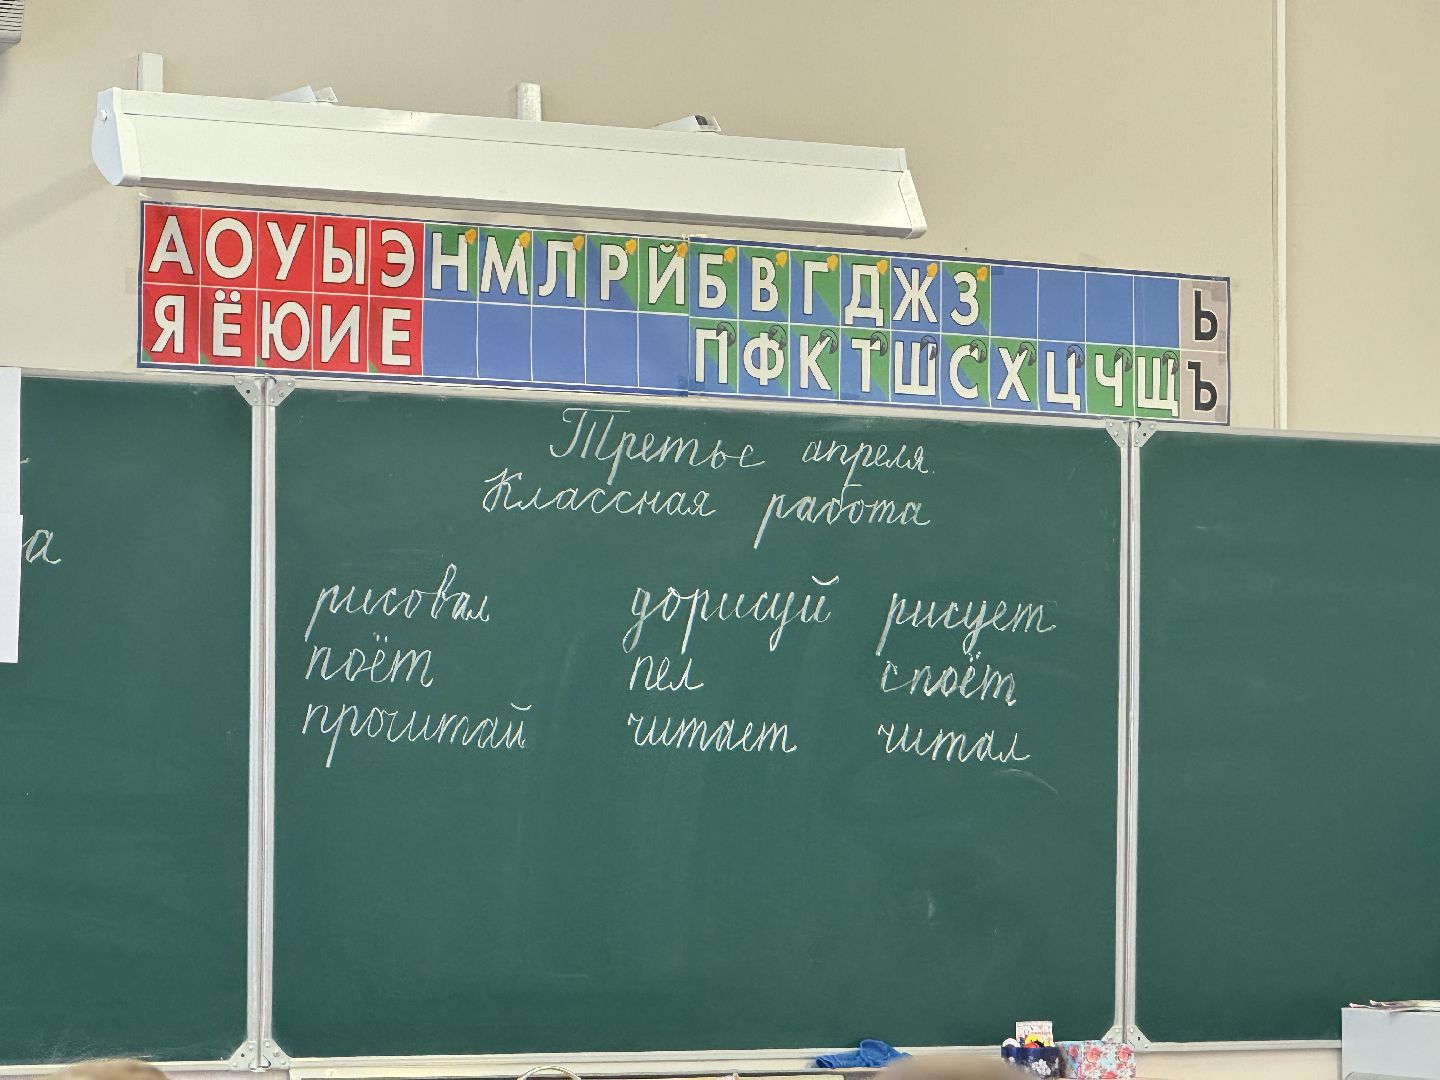 А О У Ы Э Н М Л Р Й Б В Г Д Ж З Ь
Я Ё Ю И Е П Ф К Т Ш С Х Ц Ч Щ Ъ
Третье апреля.
Классная работа
а
рисовал дорисуй рисует
поёт пел споёт
прочитай читает читал